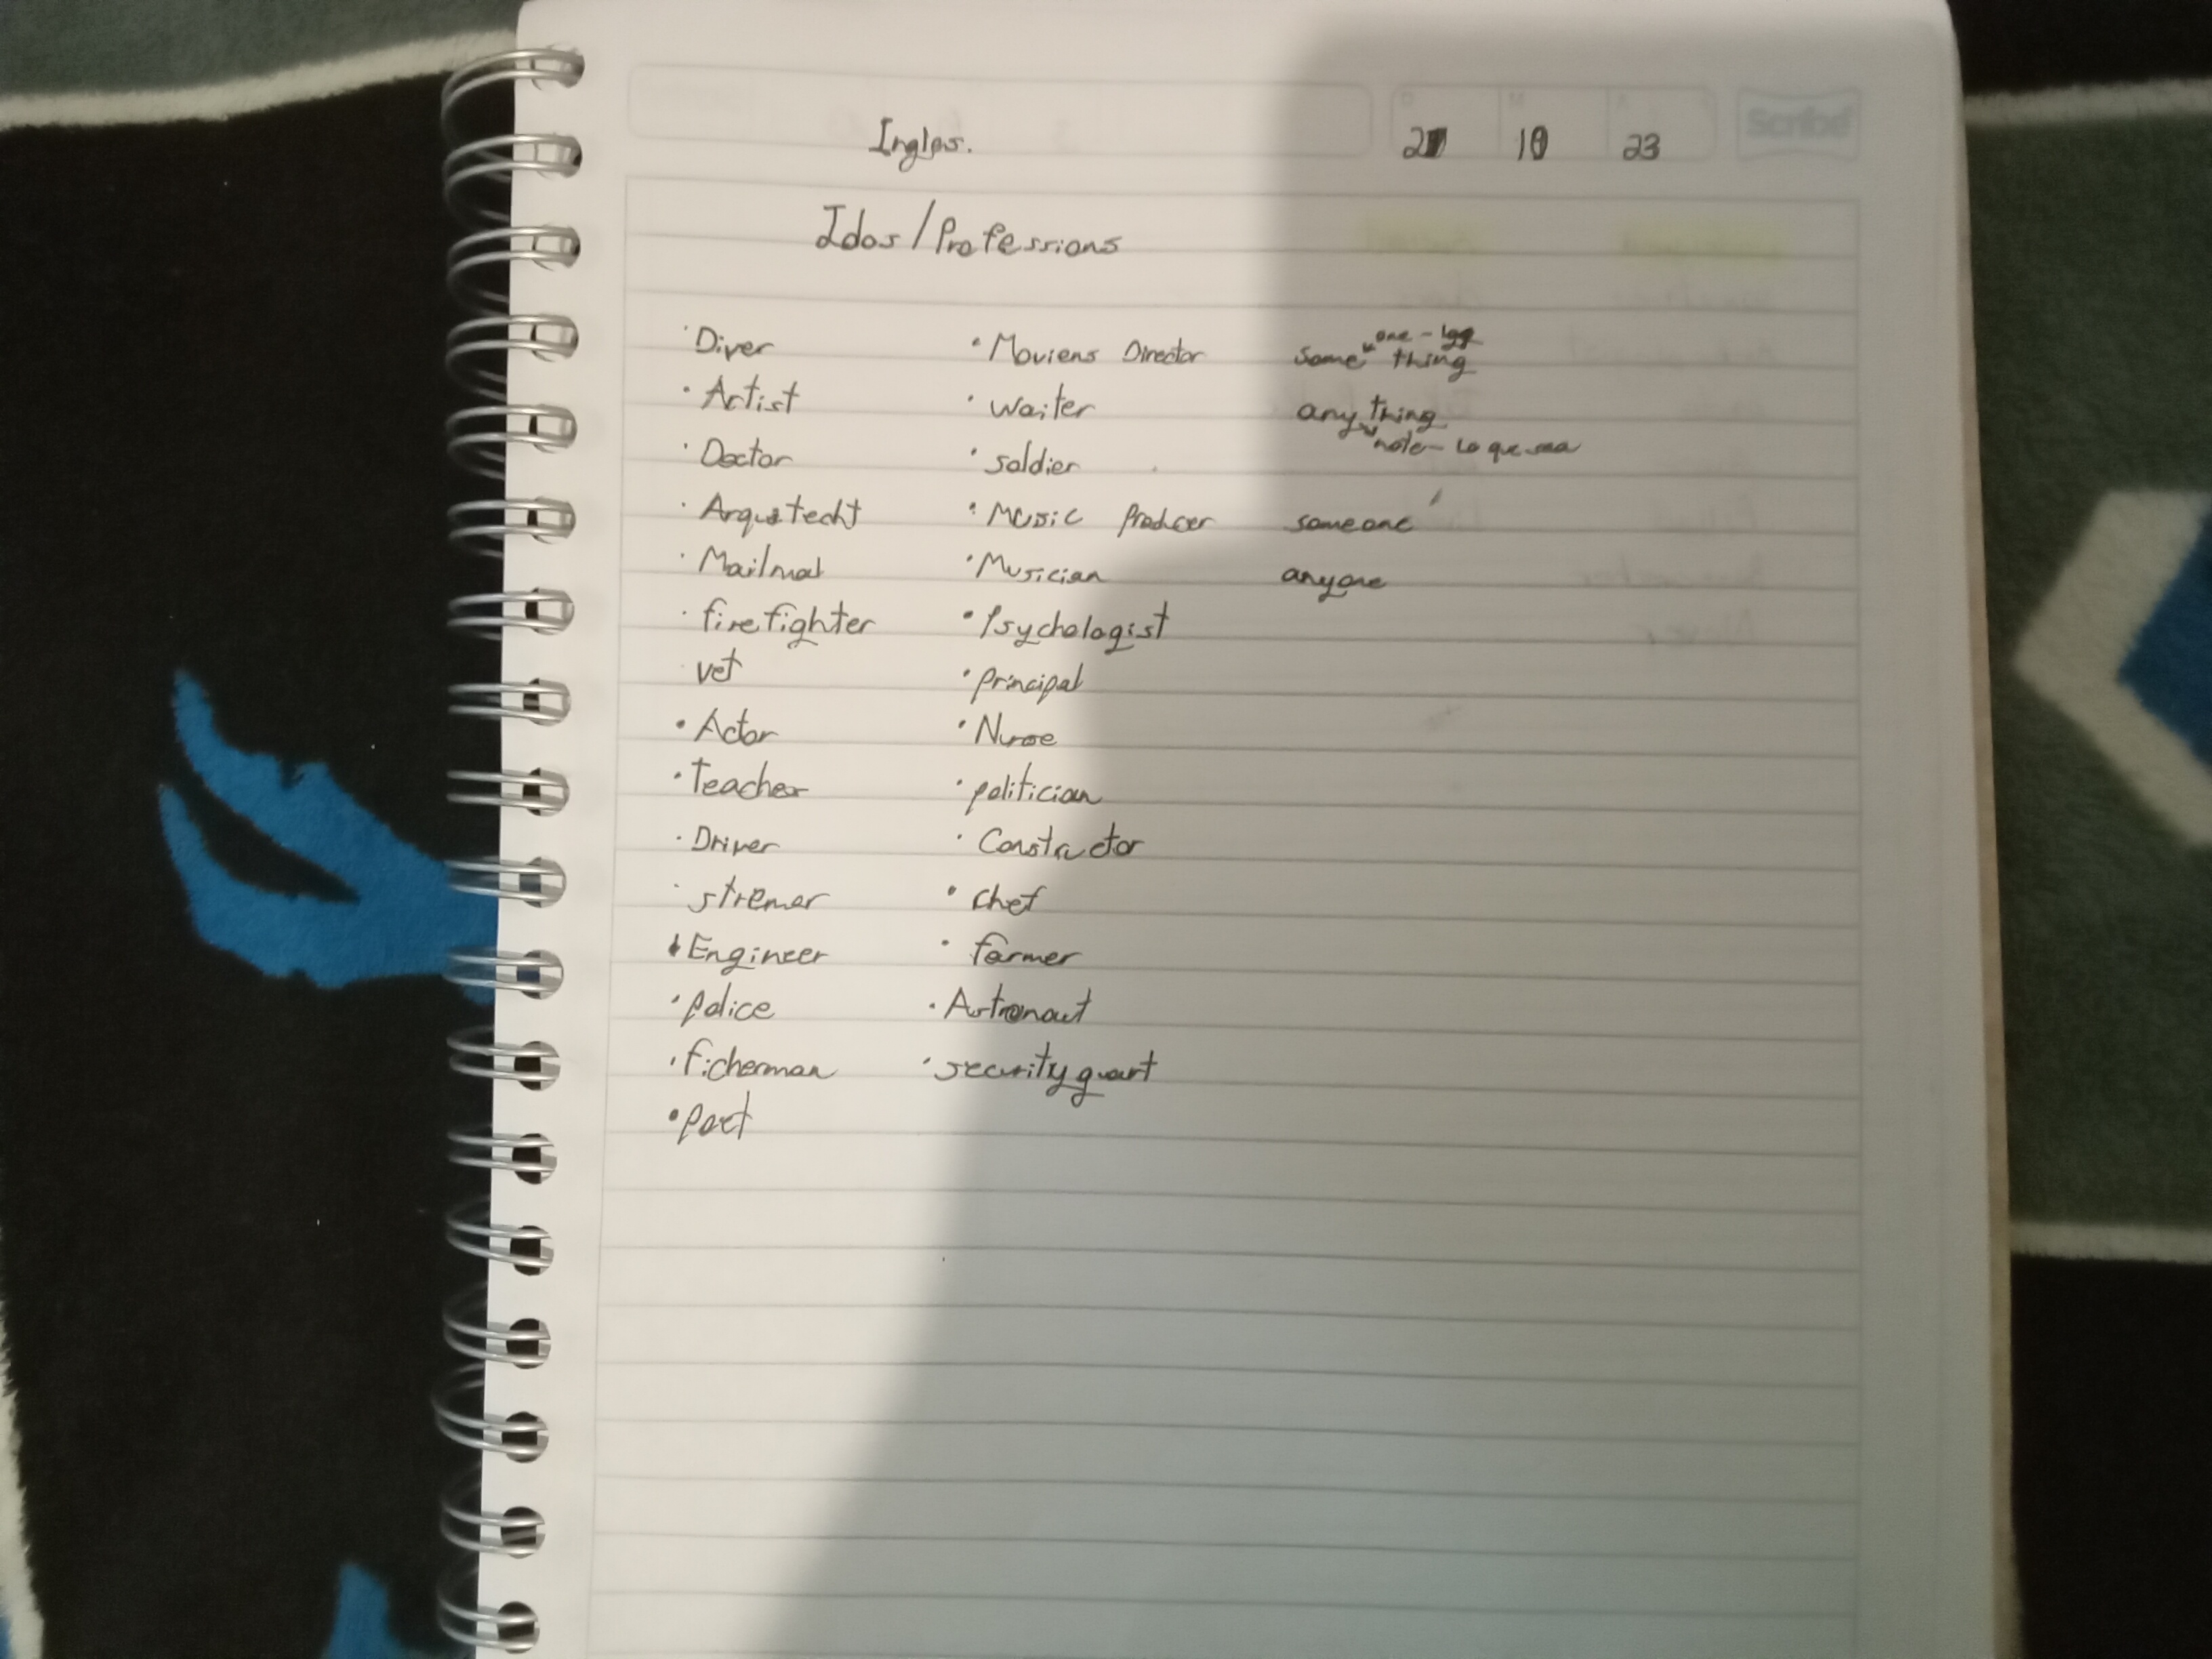 Scribe
Ingles.
10 23
Idos/Professions
· Diver · Moviens Director some thing
one -
· Artist · waiter any thing
note - Lo que sea
· Doctor · soldier
· Arquitecht · Music Producer someone
· Mailmat · Musician anyone
· firefighter · Psychologist
vet · principal
· Actor · Nurse
· Teacher · politician
· Driver · Constructor
· stremer · chef
· Engineer · farmer
· police · Astronout
· ficherman · security guart
· poet